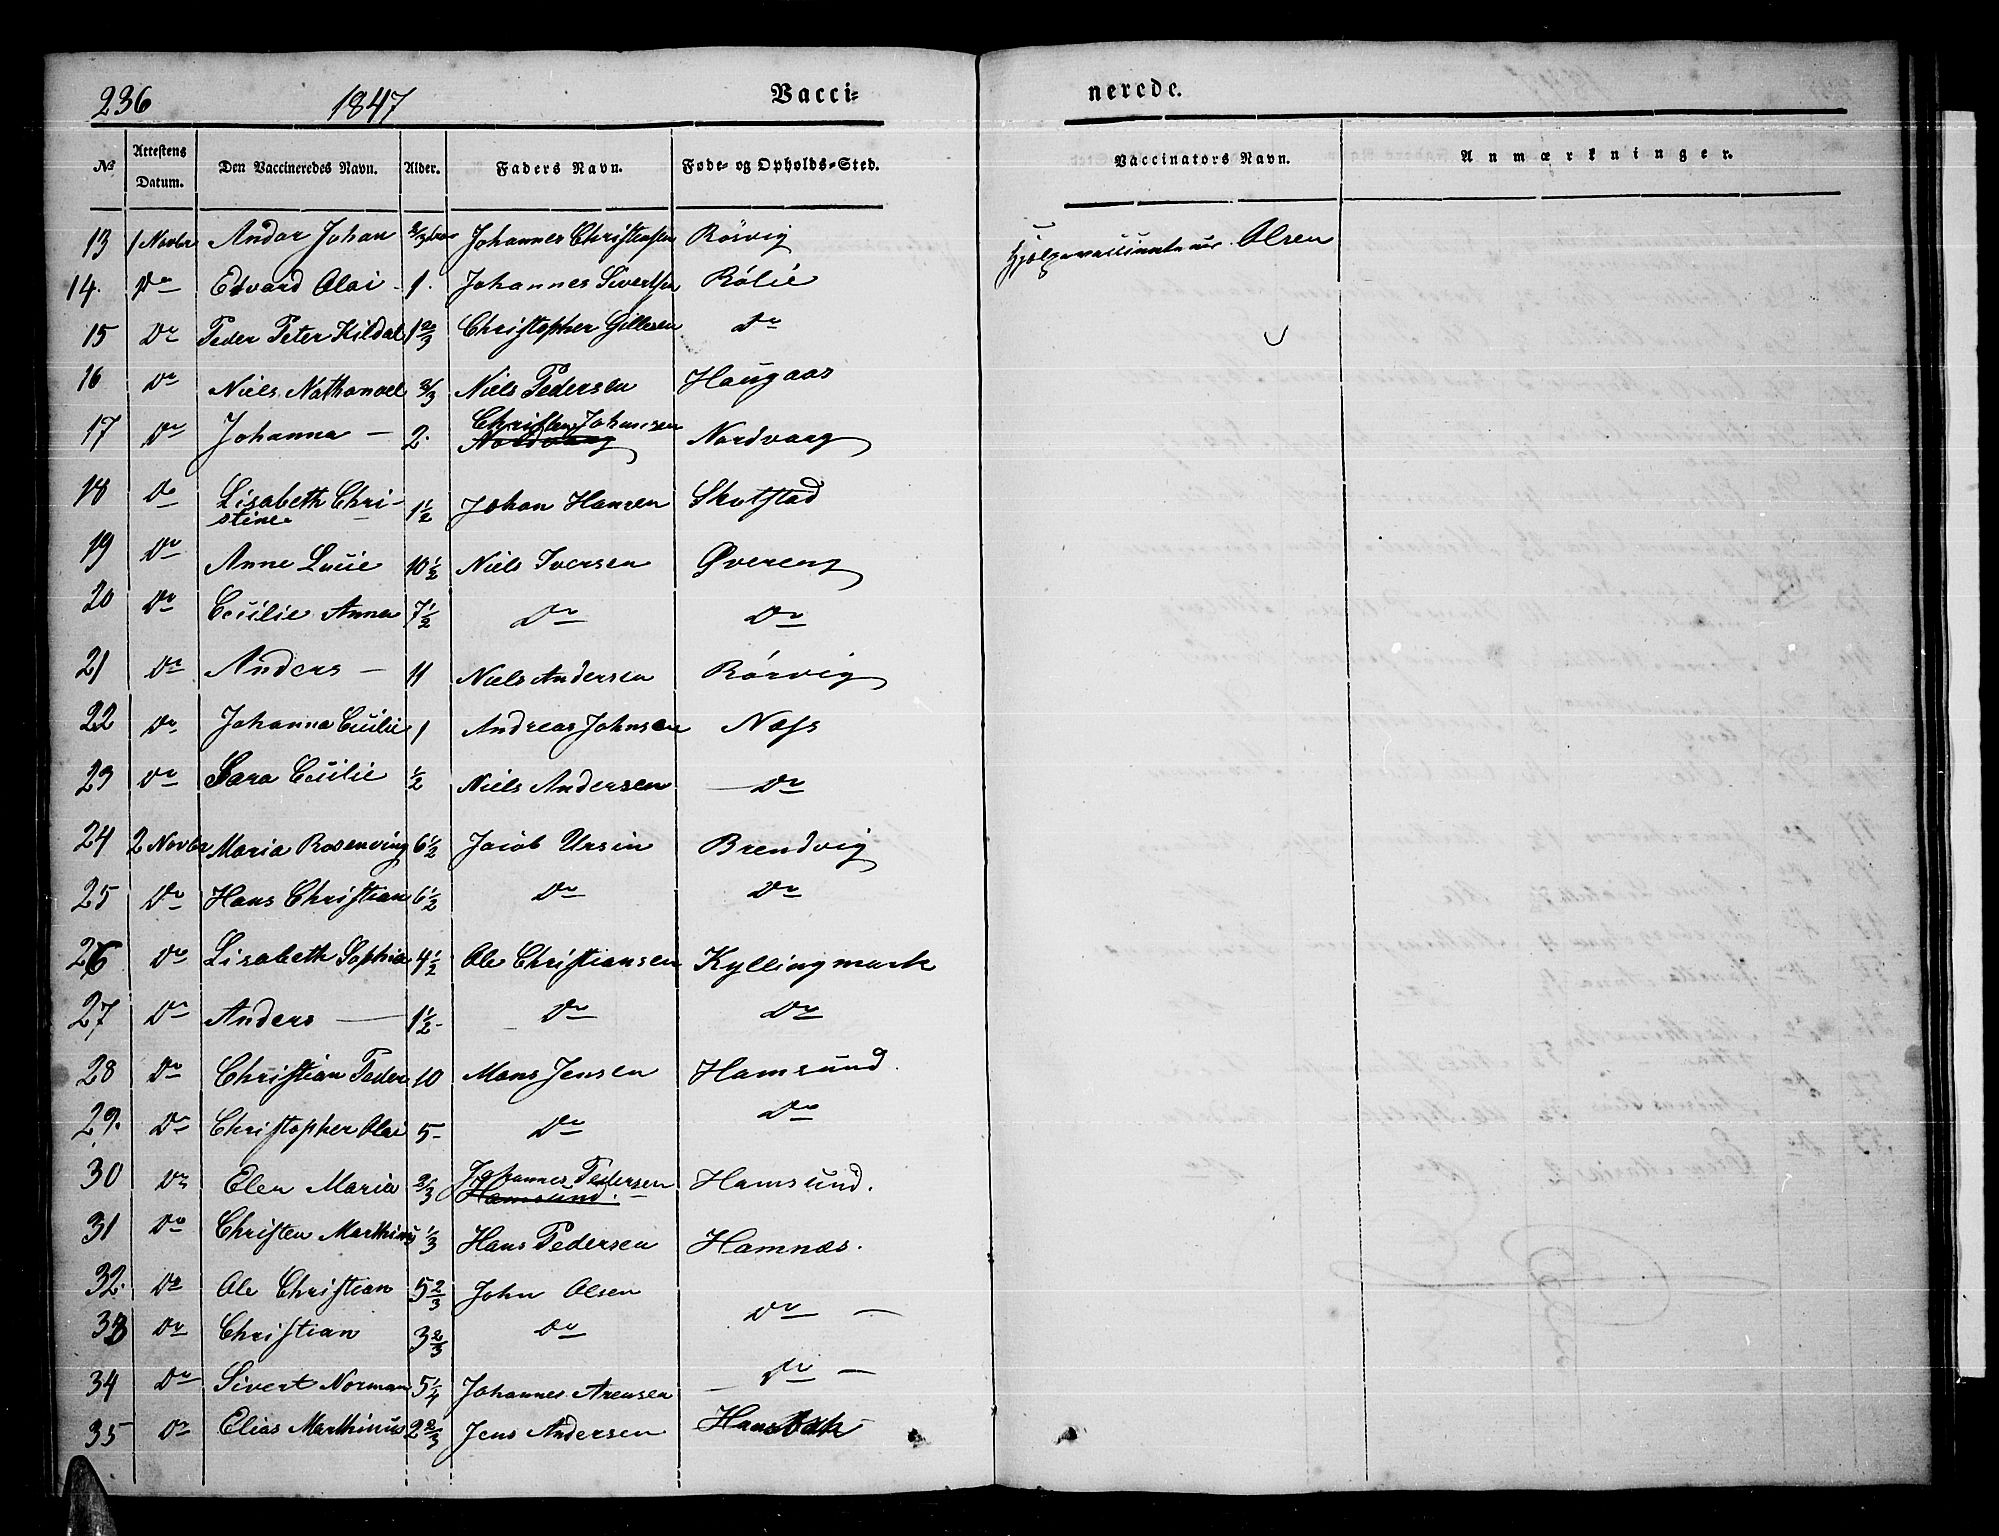 236 1847 Vacci- nerede.
No Attestens Datum. Den Vaccineredes Navn. Alder. Faders Navn. Føde- og Opholds-Sted. Vaccinators Navn. Anmærkninger.
13 1 Novbr Andor Johan 2/3 Johannes Christensen Rörvig Hjelpevaccinateur Olsen
14. Do Edvard Olai - 1. Johannes Sivertsen Rölie
15 Do Peder Peter Kildal 1 2/3 Christopher Gillesen Do
16 Do Niels Nathanael 2/3 Niels Pedersen Haugaas
17 Do Johanna - 2. Christen Johansen Nordvaag
Nordvaag
18 Do Lisabeth Chri-
stine 1 1/2 Johan Hansen Skotstad
19 Do Anne Lucie 10 1/2 Niels Iversen Øvereng
20 Do Cecilie Anna 7 1/2 Do Do
21 Do Anders - 11 Niels Andersen Rörvig
22 Do Johanna Cecilie 1 Andreas Johnsen Næss
23 Do Sara Cecilie 1/2 Niels Andersen Do
24 2 Novbr Maria Rosenving 6 1/2 Jacob Ursin Brendvig
25 Do Hans Christian 6 1/2 Do Do
26 Do Lisabeth Sophia 4 1/2 Ole Christiansen Kyllingmark
27 Do Anders - 1 1/2 Do Do
28 Do Christian Peder 10 Mons Jensen Hamsund
29. Do Christopher Olai 5- Do Do
30 Do Elen Maria 2/3 Johannes Pedersen Hamsund.
Hamsund.
31 Do Christen Marthinus 1/3 Hans Pedersen Hamnæs.
32. Do Ole Christian 5 2/3 John Olsen Do -
33 Do Christian 3 2/3 Do
34 Do Sivert Norman 5 1/4 Johannes Arensen Do -
35 Do Elias Marthinus 2 2/3 Jens Andersen